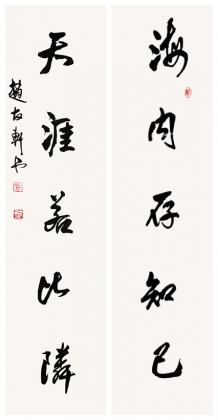 海内存知己
天涯若比隣
趙友軒書